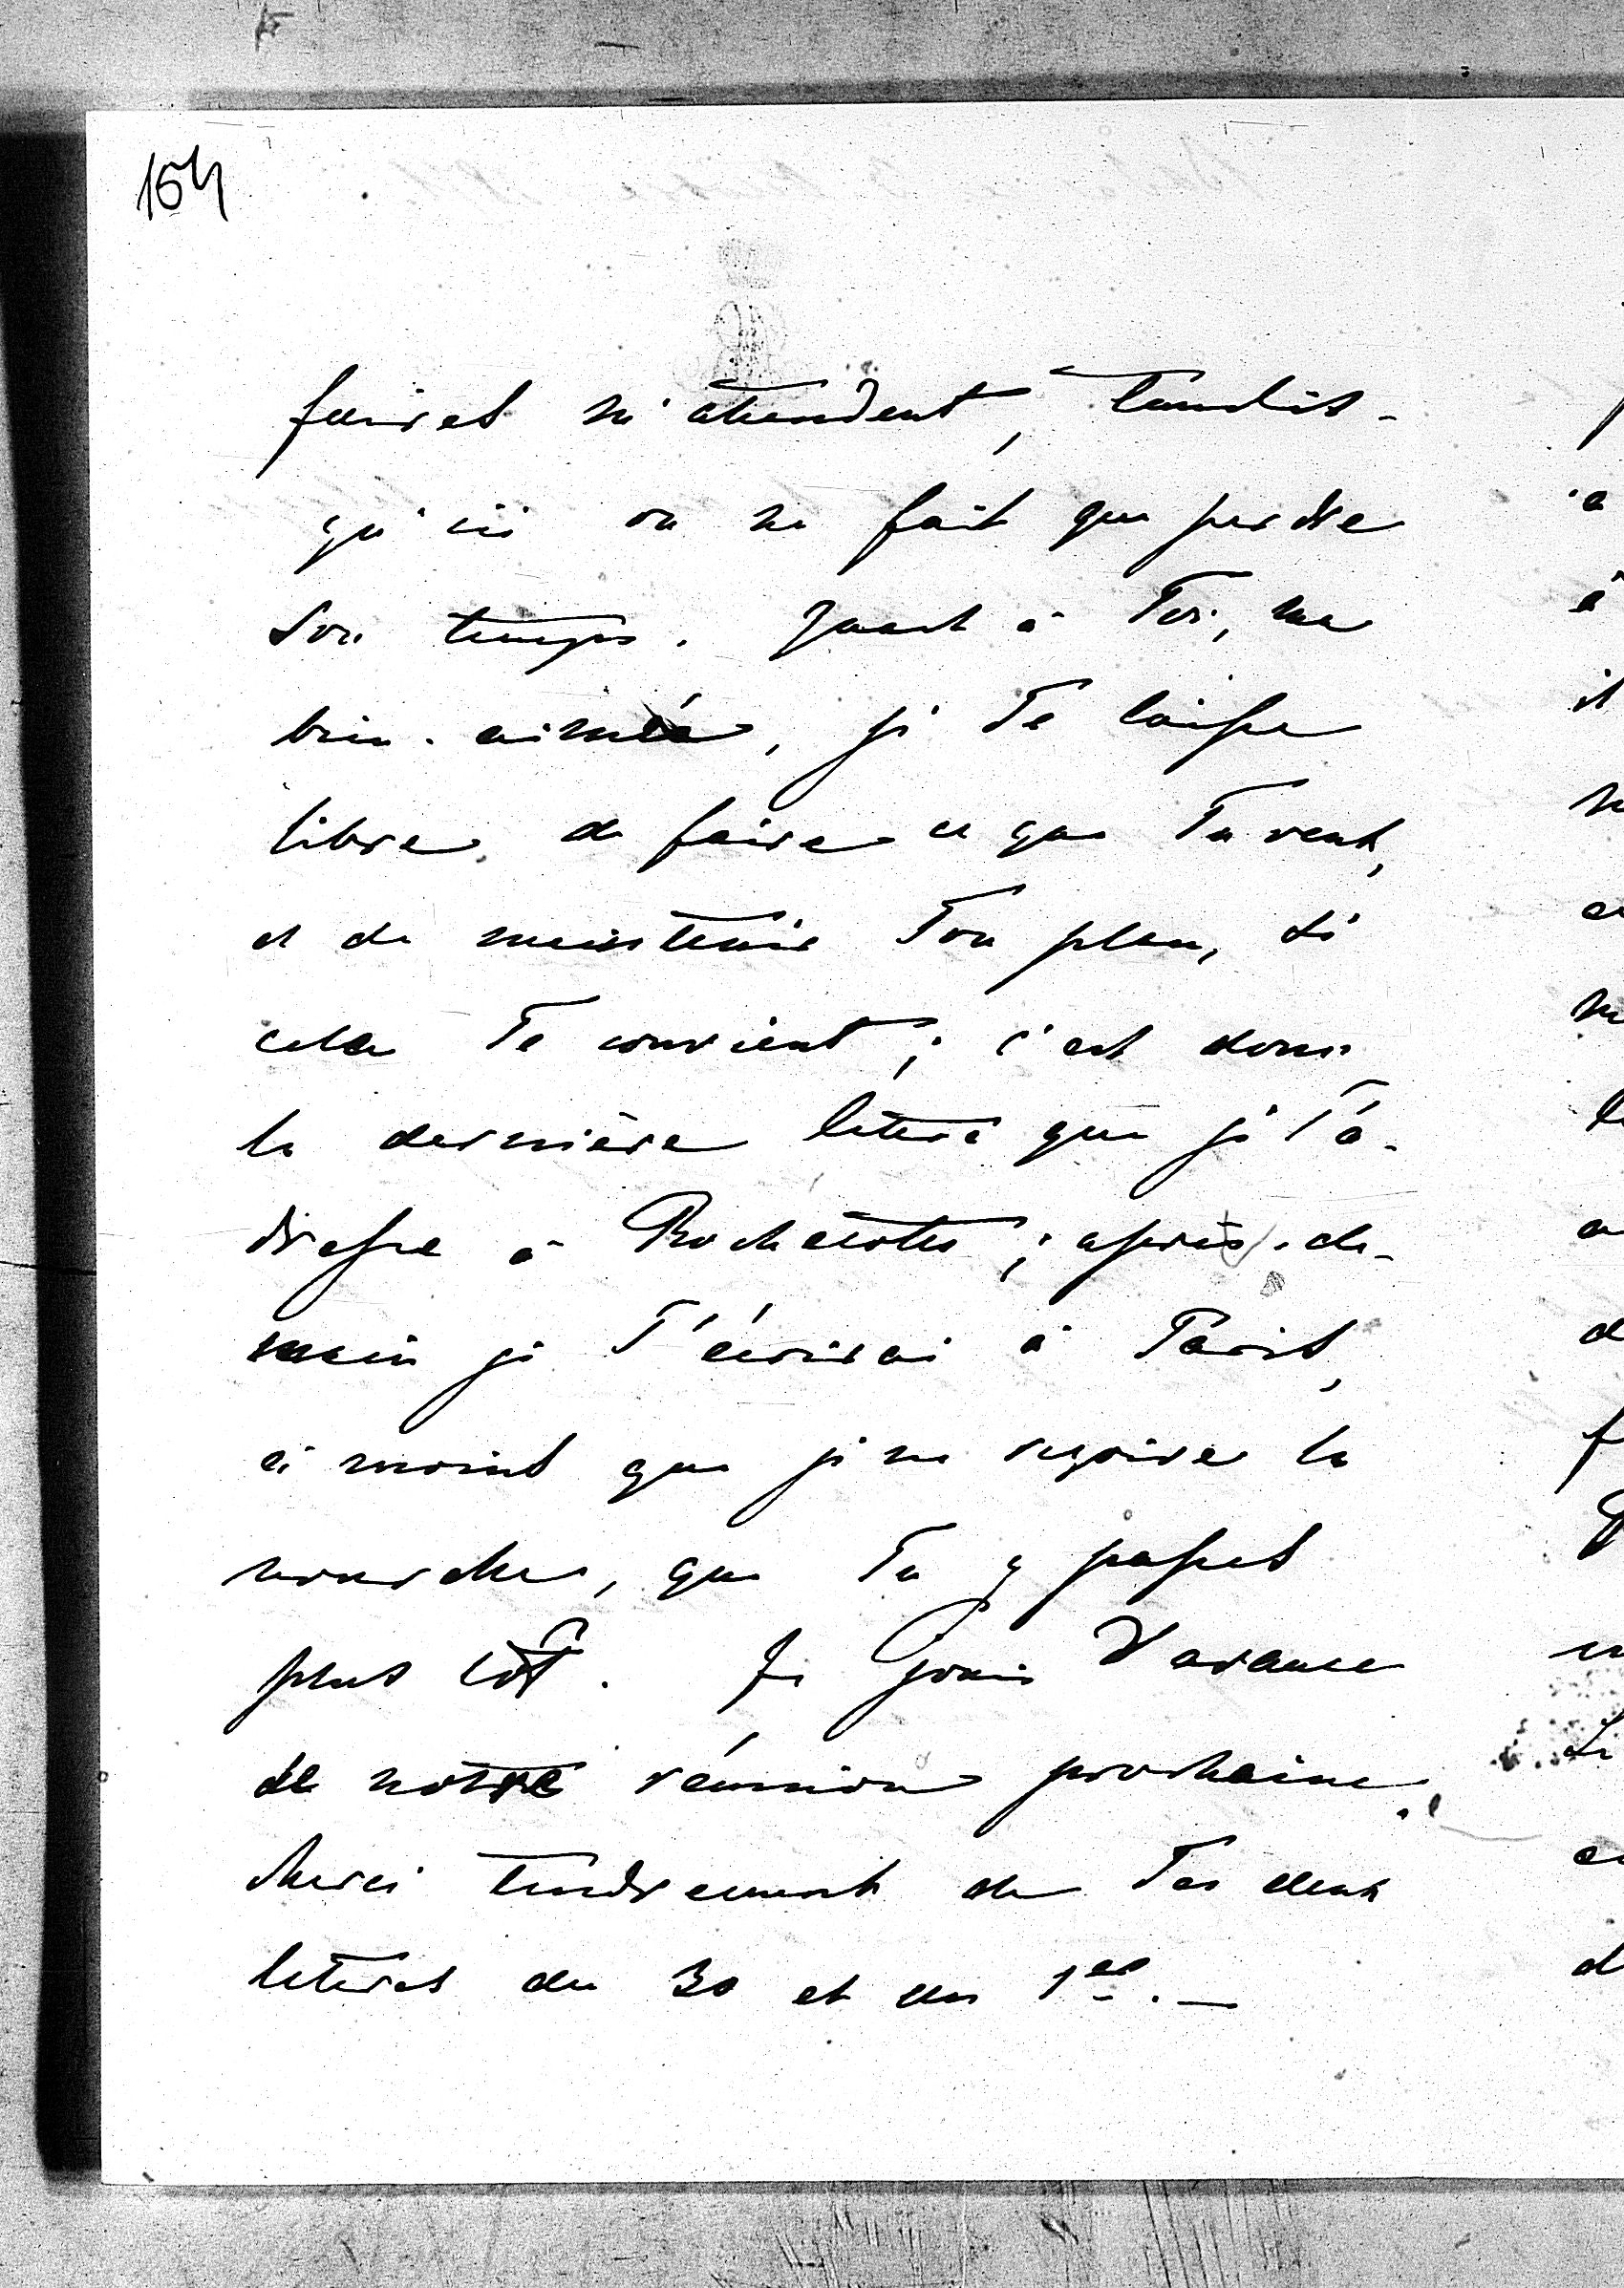 154
faires m'attendent, tandis-
qu'ici on ne fait que perdre
son temps. Quant à Toi, ma
bien-aimée, je Te laisse
libre de faire ce que Tu veux,
et de maintenir Ton plan, si
cela Te convient; c'est donc
la dernière lettre que je T'a-
dresse à Rochecotte; après-de-
main je T'écrirai à Paris,
à moins que je ne reçoive la
nouvelle, que Tu y passes
plus tôt. Je jouis d'avance
de notre réunion prochaine.
Merci tendrement de Tes deux
lettres du 30 et du 1er. —